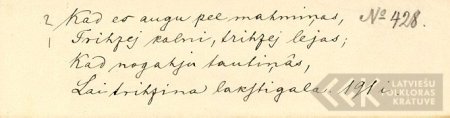 2 Kad es augu pee mahmiņas, № 428.
1 Trihzej kalni, trihzej lejas;
Kad nogahju tautiņās,
Lai trihzina lakstigala. 191
LATVIEŠU
FOLKLORAS
KRĀTUVE